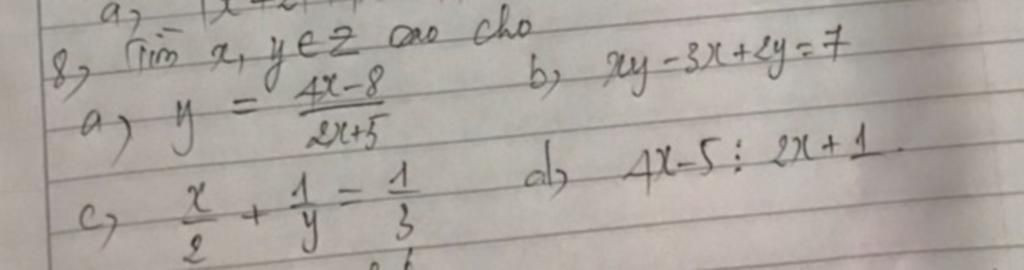 a, |x+2|
8, Tìm x, y ∈ Z sao cho
a, y = \frac{4x-8}{2x+5} b, xy-3x+2y=7
c, \frac{x}{2} + \frac{1}{y} = \frac{1}{3} d, 4x-5 ⋮ 2x+1.